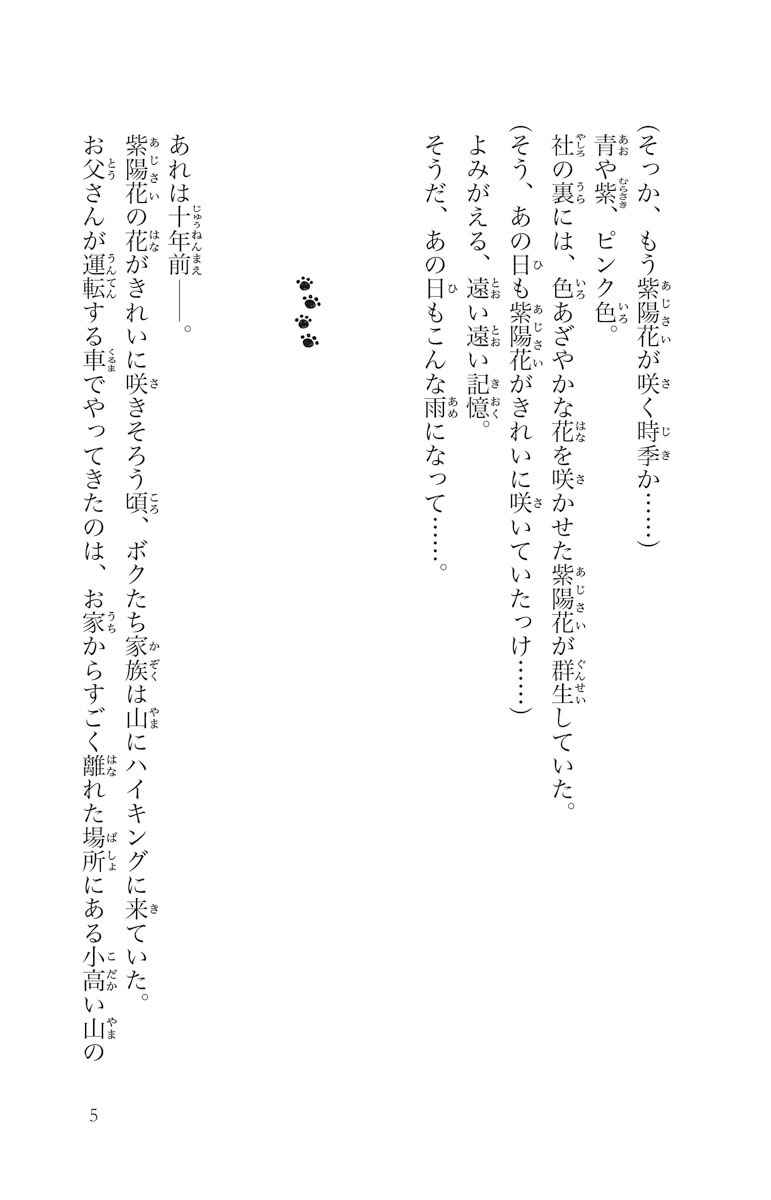 （そっか、もう紫陽花が咲く時季か……）
青や紫、ピンク色。
社の裏には、色あざやかな花を咲かせた紫陽花が群生していた。
（そう、あの日も紫陽花がきれいに咲いていたっけ……）
よみがえる、遠い遠い記憶。
そうだ、あの日もこんな雨になって……。
あれは十年前――。
紫陽花の花がきれいに咲きそろう頃、ボクたち家族は山にハイキングに来ていた。
お父さんが運転する車でやってきたのは、お家からすごく離れた場所にある小高い山の
5